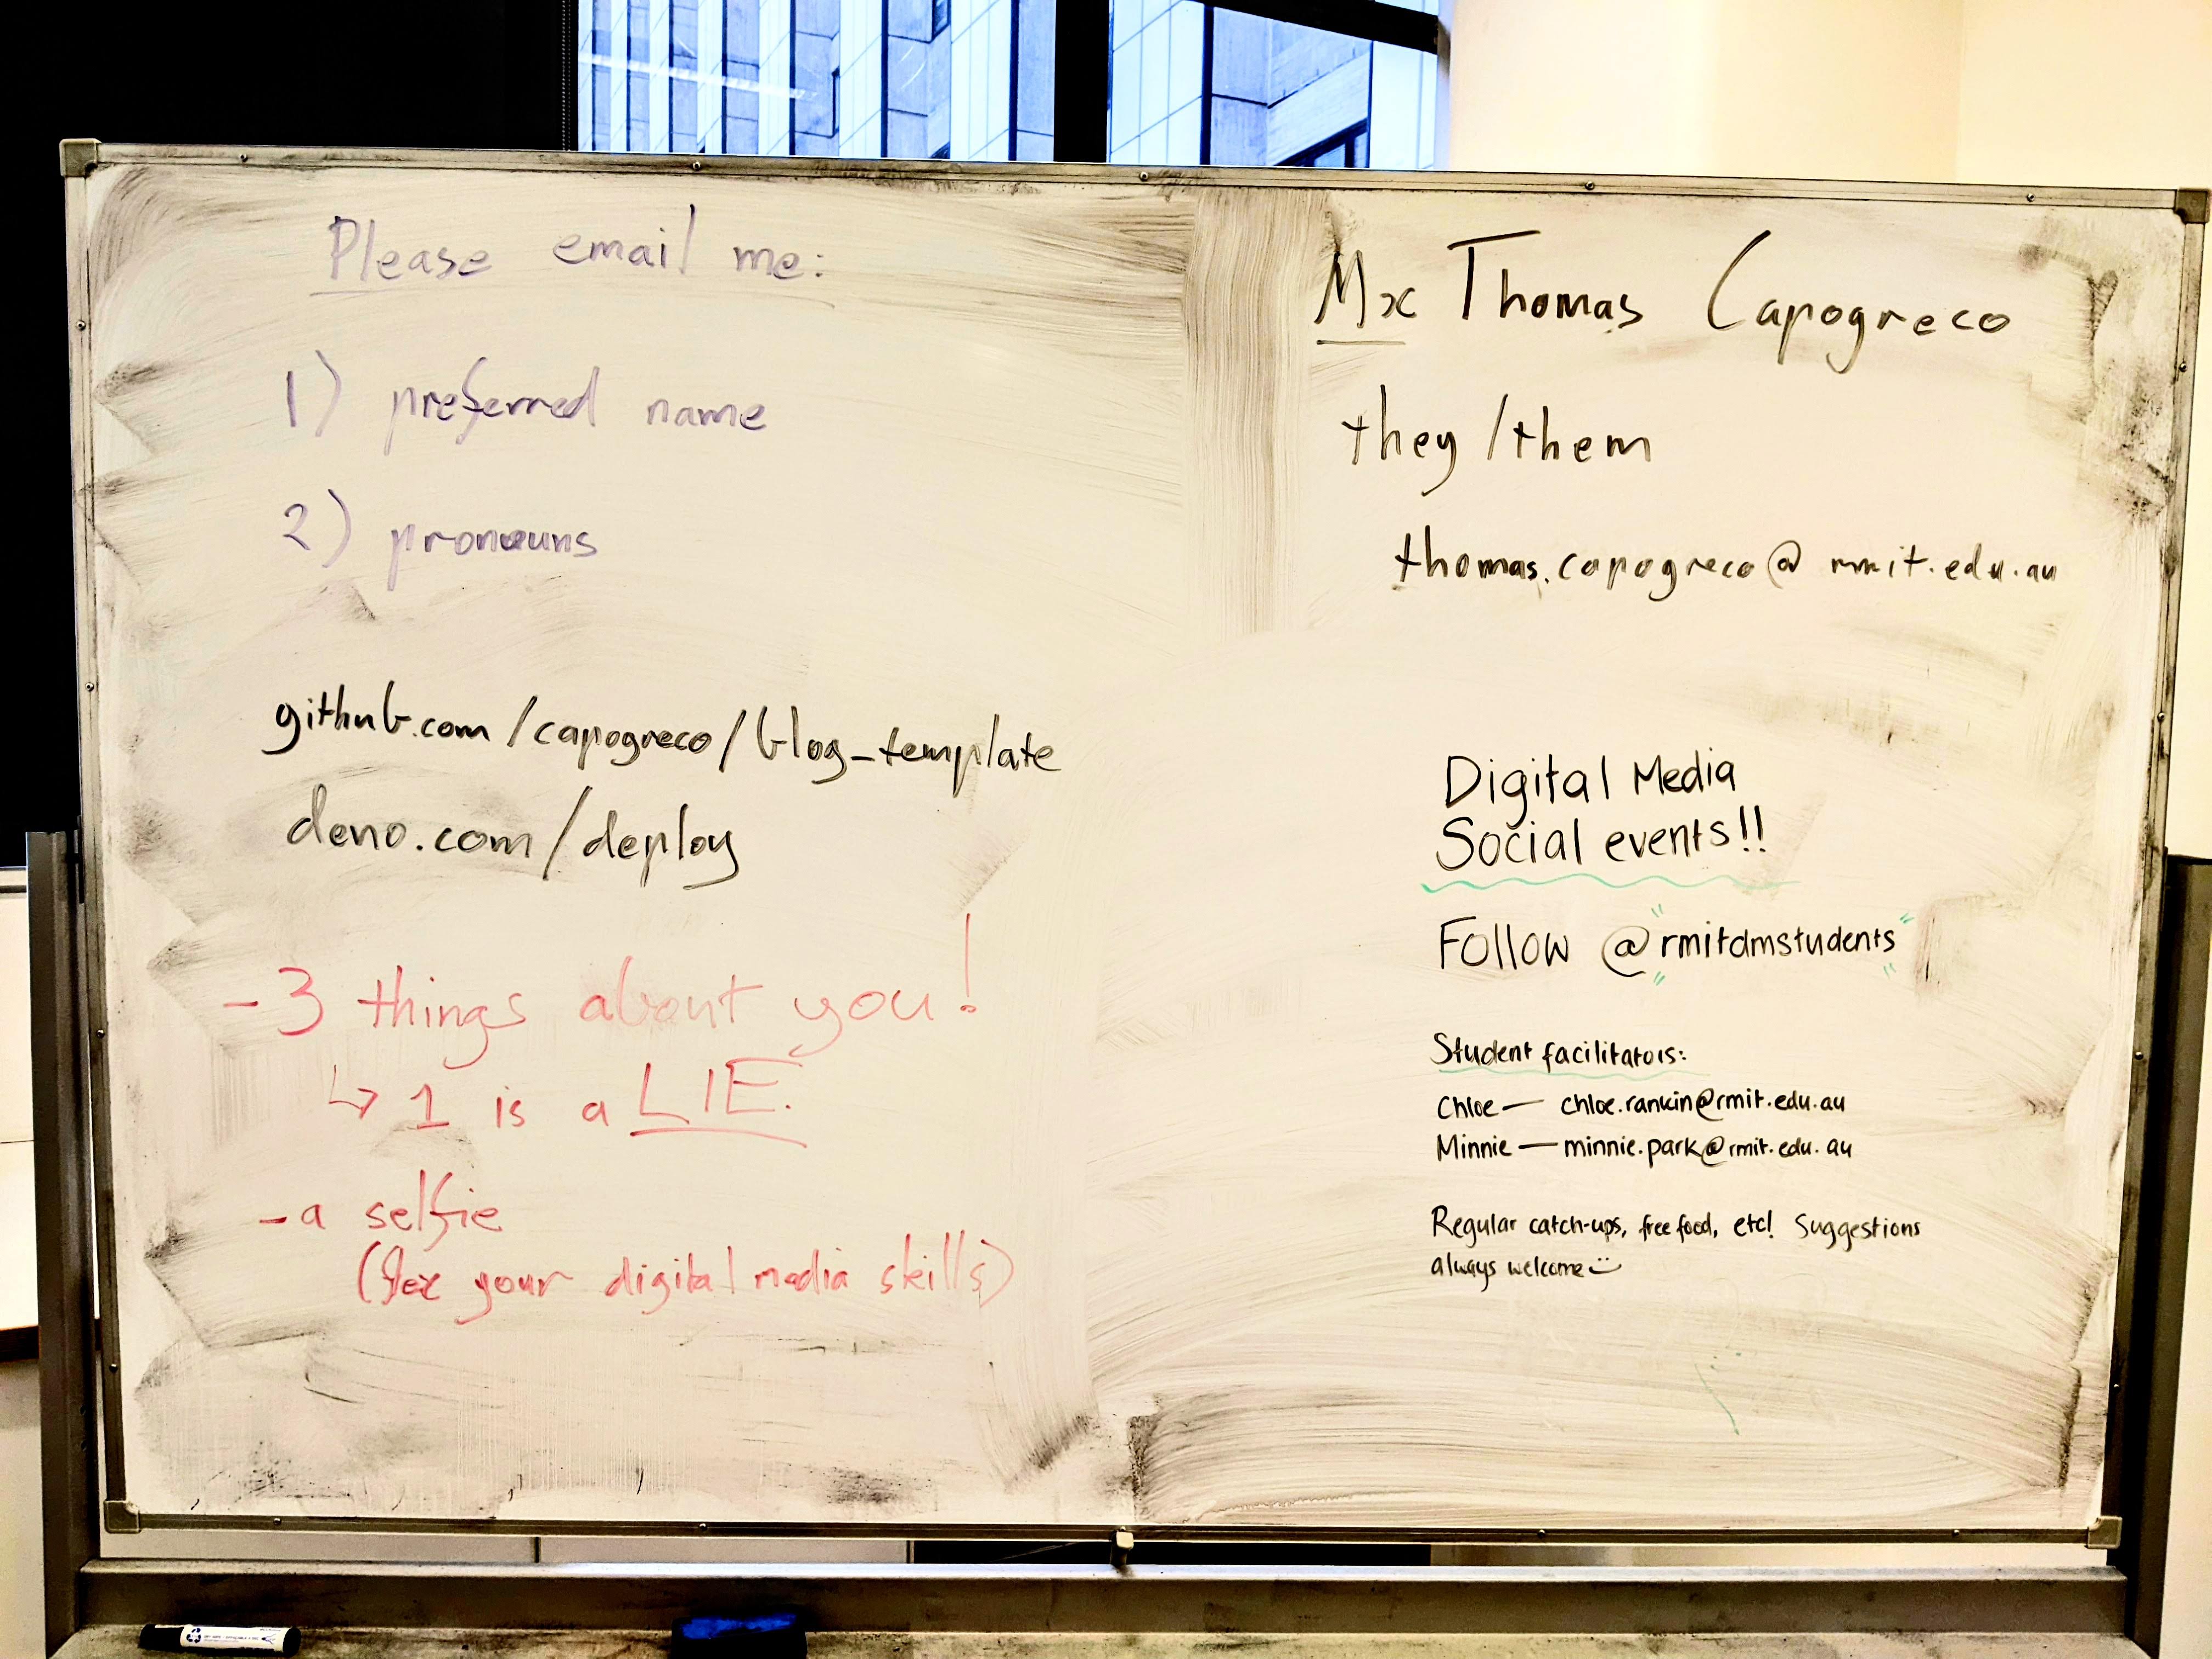 Please email me:
1) preferred name
2) pronouns
github.com/capogreco/blog_template
deno.com/deploy
- 3 things about you!
↳ 1 is a LIE.
- a selfie
(flex your digital media skills)
Mx Thomas Capogreco
they/them
thomas.capogreco@rmit.edu.au
Digital Media
Social events!!
Follow @rmitdmstudents
Student facilitators:
Chloe — chloe.rankin@rmit.edu.au
Minnie — minnie.park@rmit.edu.au
Regular catch-ups, free food, etc! Suggestions
always welcome :)